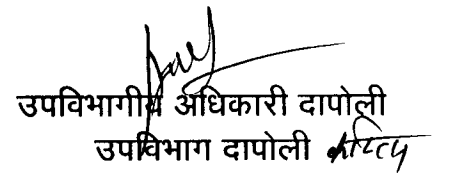 उपविभागीय अधिकारी दापोली
उपविभाग दापोली